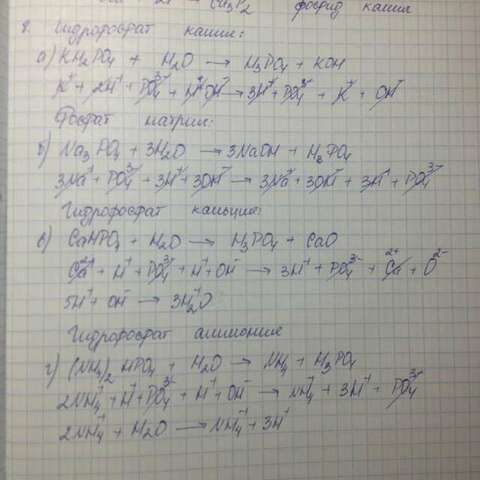 фосфид калия
2. Гидрофосфат калия:
а) KH₂PO₄ + H₂O → H₃PO₄ + KOH
K⁺ + 2H⁺ + PO₄³⁻ + H⁺OH⁻ → 3H⁺ + PO₄³⁻ + K⁺ + OH⁻
Фосфат натрия:
б) Na₃PO₄ + 3H₂O → 3NaOH + H₃PO₄
3Na⁺ + PO₄³⁻ + 3H⁺ + 3OH⁻ → 3Na⁺ + 3OH⁻ + 3H⁺ + PO₄³⁻
Гидрофосфат кальция:
в) CaHPO₄ + H₂O → H₃PO₄ + CaO
Ca²⁺ + H⁺ + PO₄³⁻ + H⁺ + OH⁻ → 3H⁺ + PO₄³⁻ + Ca²⁺ + O²⁻
5H⁺ + OH⁻ → 3H₂O
Гидрофосфат аммония
г) (NH₄)₂HPO₄ + H₂O → NH₄ + H₃PO₄
2NH₄⁺ + H⁺ + PO₄³⁻ + H⁺ + OH⁻ → NH₄⁺ + 3H⁺ + PO₄³⁻
2NH₄⁺ + H₂O → NH₄⁺ + 3H⁺